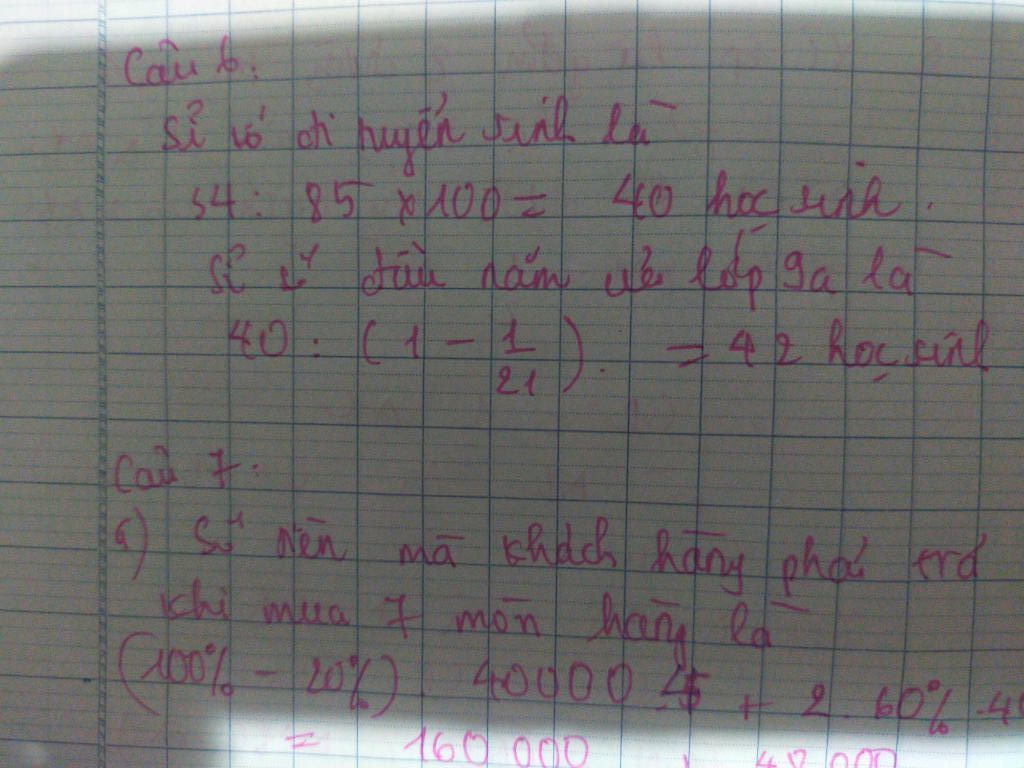 Câu 6:
Sỉ số thi tuyển sinh là
34 : 85 x 100 = 40 học sinh.
Sỉ số đầu năm của lớp 9a là
40 : (1 - 1/21). = 42 học sinh
Câu 7:
a) Số tiền mà khách hàng phải trả
khi mua 7 món hàng là
(100% - 20%) . 40000 . 5 + 2 . 60% . 40
= 160 000 + 48 000